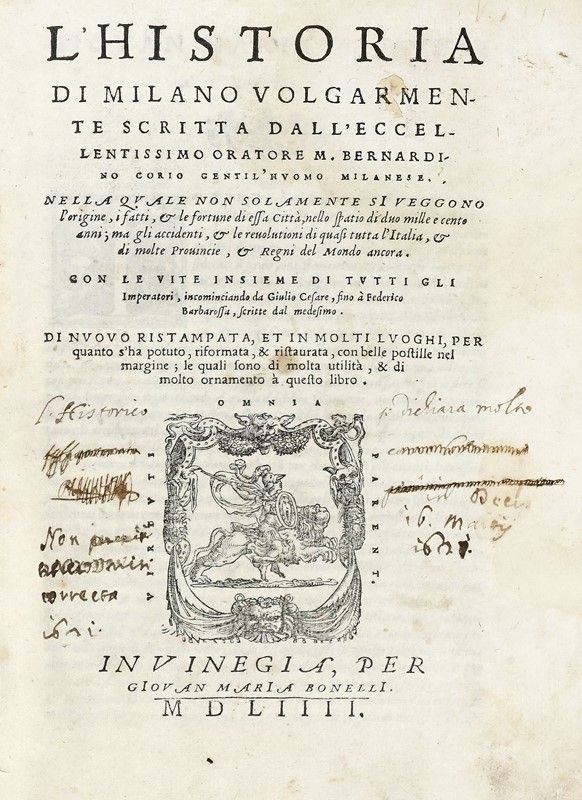 L'HISTORIA
DI MILANO VOLGARMEN-
TE SCRITTA DALL'ECCEL-
LENTISSIMO ORATORE M. BERNARDI-
NO CORIO GENTIL'HVOMO MILANESE.
NELLA QVALE NON SOLAMENTE SI VEGGONO
l'origine, i fatti, & le fortune di essa Città, nello spatio di duo mille e cento
anni; ma gli accidenti, & le reuolutioni di quasi tutta l'Italia, &
di molte Prouincie, & Regni del Mondo ancora.
CON LE VITE INSIEME DI TVTTI GLI
Imperatori, incominciando da Giulio Cesare, fino à Federico
Barbarossa, scritte dal medesimo.
DI NVOVO RISTAMPATA, ET IN MOLTI LVOGHI, PER
quanto s'ha potuto, riformata, & ristaurata, con belle postille nel
margine; le quali sono di molta utilità, & di
molto ornamento à questo libro.
OMNIA
VIRTVTI
PARENT.
Historico
Non
correcta
1621.
dichiara molto
16. Martij
1621.
IN VINEGIA, PER
GIOVAN MARIA BONELLI.
MDLIIII.